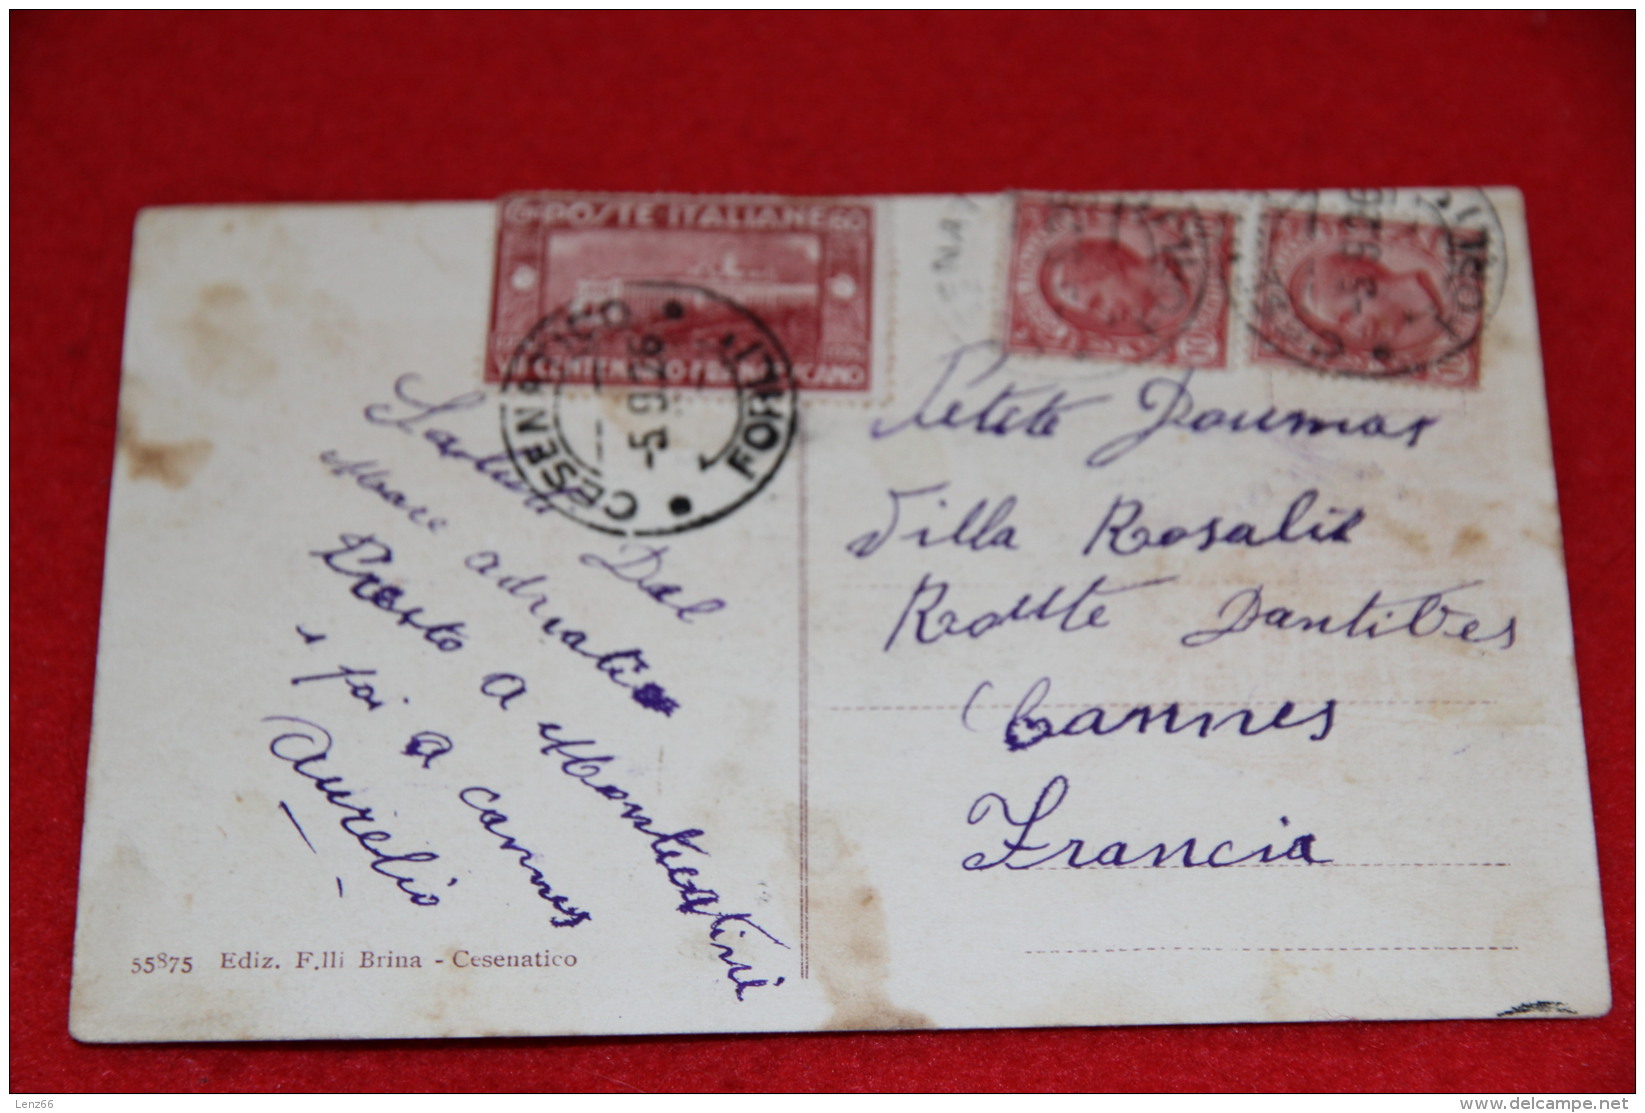 60 POSTE ITALIANE 60
VII CENTENARIO FRANCESCANO
CESENATICO
FORLI'
-5.9.26
-5.9.26
10
10
Saluti Dal
Mare adriatico
Presto a Montecatini
e poi a cannes
Aurelio
Petite Doumas
Villa Rosalie
Route Dantibes
Cannes
Francia
55875 Ediz. F.lli Brina - Cesenatico
Lenz66
delcampe.net